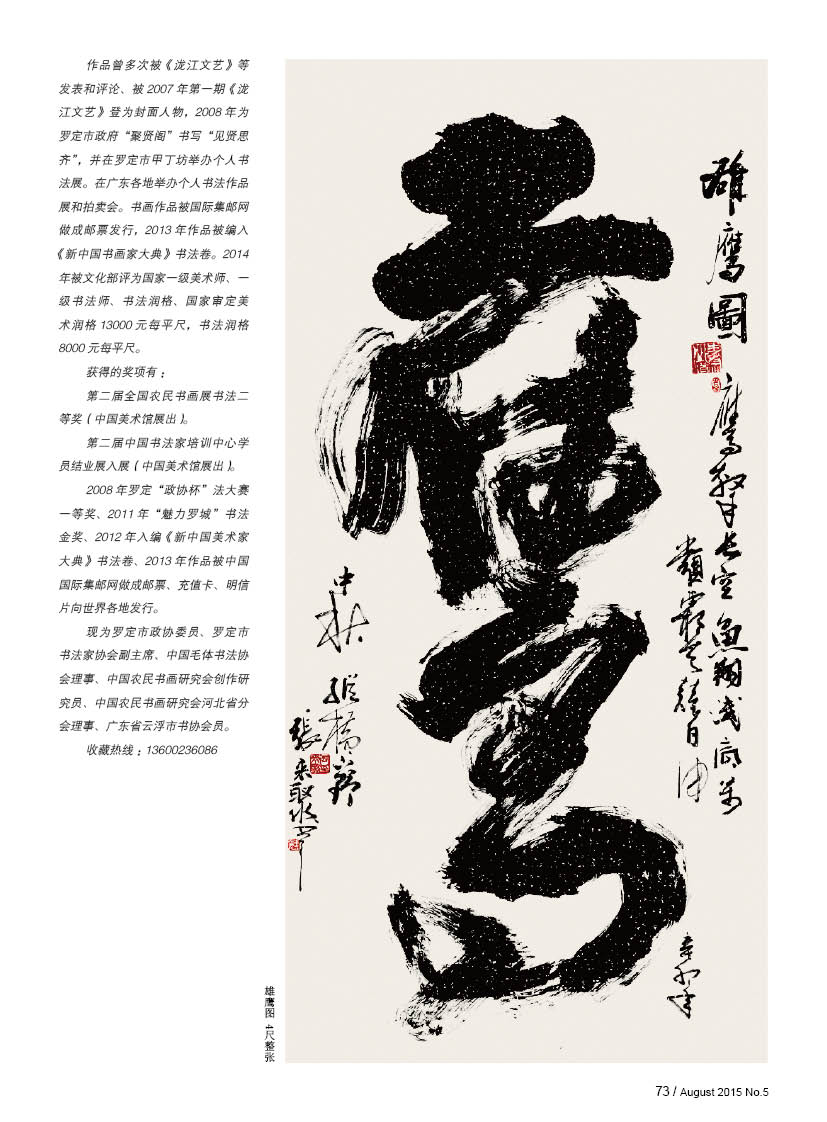 作品曾多次被《泷江文艺》等
发表和评论、被 2007 年第一期《泷
江文艺》登为封面人物，2008 年为
罗定市政府“聚贤阁”书写“见贤思
齐”，并在罗定市甲丁坊举办个人书
法展。在广东各地举办个人书法作品
展和拍卖会。书画作品被国际集邮网
做成邮票发行，2013 年作品被编入
《新中国书画家大典》书法卷。2014
年被文化部评为国家一级美术师、一
级书法师、书法润格、国家审定美
术润格 13000 元每平尺，书法润格
8000 元每平尺。
获得的奖项有：
第二届全国农民书画展书法二
等奖（中国美术馆展出）。
第二届中国书法家培训中心学
员结业展入展（中国美术馆展出）。
2008 年罗定“政协杯”法大赛
一等奖、2011 年“魅力罗城”书法
金奖、2012 年入编《新中国美术家
大典》书法卷、2013 年作品被中国
国际集邮网做成邮票、充值卡、明信
片向世界各地发行。
现为罗定市政协委员、罗定市
书法家协会副主席、中国毛体书法协
会理事、中国农民书画研究会创作研
究员、中国农民书画研究会河北省分
会理事、广东省云浮市书协会员。
收藏热线：13600236086
雄鹰圖
鹰擊长空魚翔浅底万
類霜天競自由
鹰
中秋
張
雄鹰图 4尺整张
73 / August 2015 No.5